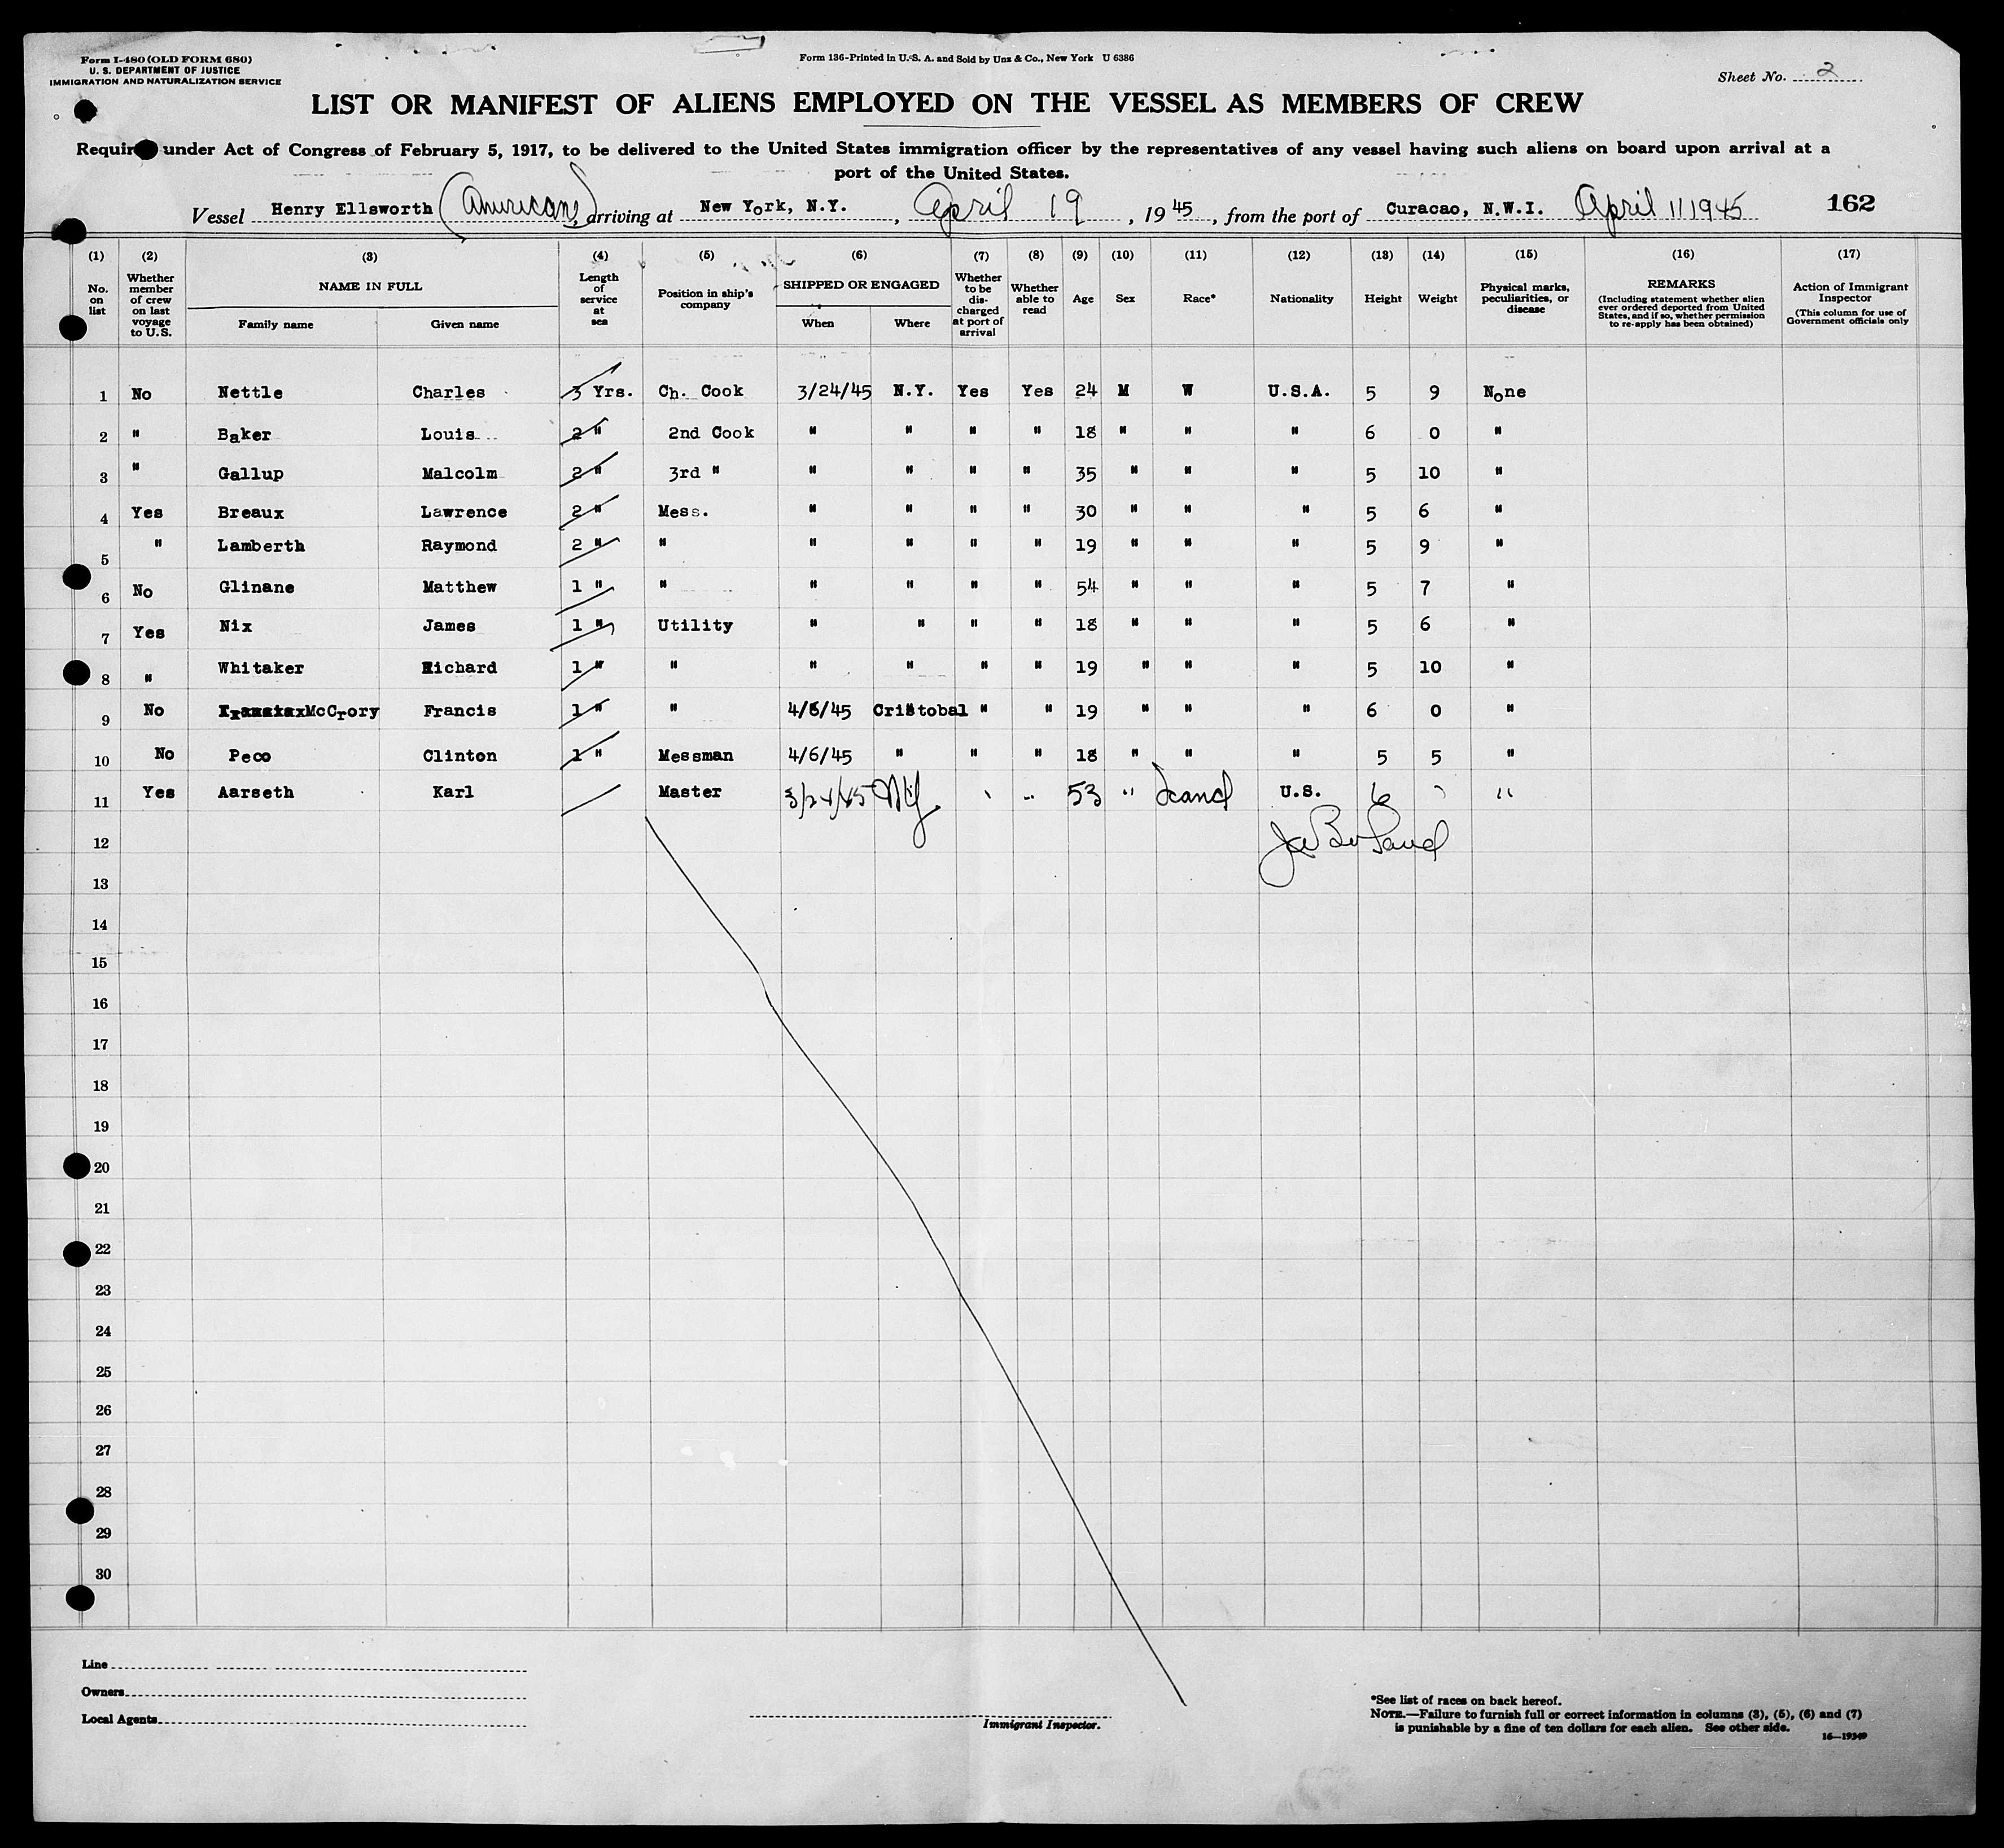 Form I-480 (OLD FORM 680)
U. S. DEPARTMENT OF JUSTICE
IMMIGRATION AND NATURALIZATION SERVICE
Form 136-Printed in U. S. A. and Sold by Unz & Co., New York U 6386
Sheet No. 2
LIST OR MANIFEST OF ALIENS EMPLOYED ON THE VESSEL AS MEMBERS OF CREW
Required under Act of Congress of February 5, 1917, to be delivered to the United States immigration officer by the representatives of any vessel having such aliens on board upon arrival at a
port of the United States.
Vessel Henry Ellsworth (Americans) arriving at New York, N.Y., April 19, 1945, from the port of Curacao, N.W.I. April 11 1945 162
(1) (2) (3) (4) (5) (6) (7) (8) (9) (10) (11) (12) (13) (14) (15) (16) (17)
No. on list
Whether member of crew on last voyage to U.S.
NAME IN FULL
Family name Given name
Length of service at sea
Position in ship's company
SHIPPED OR ENGAGED
When Where
Whether to be discharged at port of arrival
Whether able to read
Age
Sex
Race*
Nationality
Height
Weight
Physical marks, peculiarities, or disease
REMARKS
(Including statement whether alien ever ordered deported from United States, and if so, whether permission to re-apply has been obtained)
Action of Immigrant Inspector
(This column for use of Government officials only
1 No Nettle Charles 3 Yrs. Ch. Cook 3/24/45 N.Y. Yes Yes 24 M W U.S.A. 5 9 None
2 " Baker Louis 2 " 2nd Cook " " " " 18 " " " 6 0 "
3 " Gallup Malcolm 2 " 3rd " " " " " 35 " " " 5 10 "
4 Yes Breaux Lawrence 2 " Mess. " " " " 30 " " " 5 6 "
5 " Lamberth Raymond 2 " " " " " " 19 " " " 5 9 "
6 No Glinane Matthew 1 " " " " " " 54 " " " 5 7 "
7 Yes Nix James 1 " Utility " " " " 18 " " " 5 6 "
8 " Whitaker Richard 1 " " " " " " 19 " " " 5 10 "
9 No McCrory Francis 1 " " 4/6/45 Cristobal " " 19 " " " 6 0 "
10 No Peco Clinton 1 " Messman 4/6/45 " " " 18 " " " 5 5 "
11 Yes Aarseth Karl Master 3/24/45 NY " " 53 " Scand U.S. 6 "
12
13
14
15
16
17
18
19
20
21
22
23
24
25
26
27
28
29
30
Line
Owners
Local Agents
Immigrant Inspector.
*See list of races on back hereof.
NOTE.—Failure to furnish full or correct information in columns (3), (5), (6) and (7)
is punishable by a fine of ten dollars for each alien. See other side.
16—19349